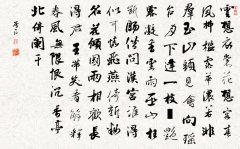 雲想衣裳花想容春
風拂檻露華濃若非
群玉山頭見會向瑤
台月下逢一枝艷
露凝香雲雨巫山枉
斷腸借問漢宮誰得
似可憐飛燕倚新妝
名花傾國兩相歡長
得君王帶笑看解釋
春風無限恨沉香亭
北倚闌干